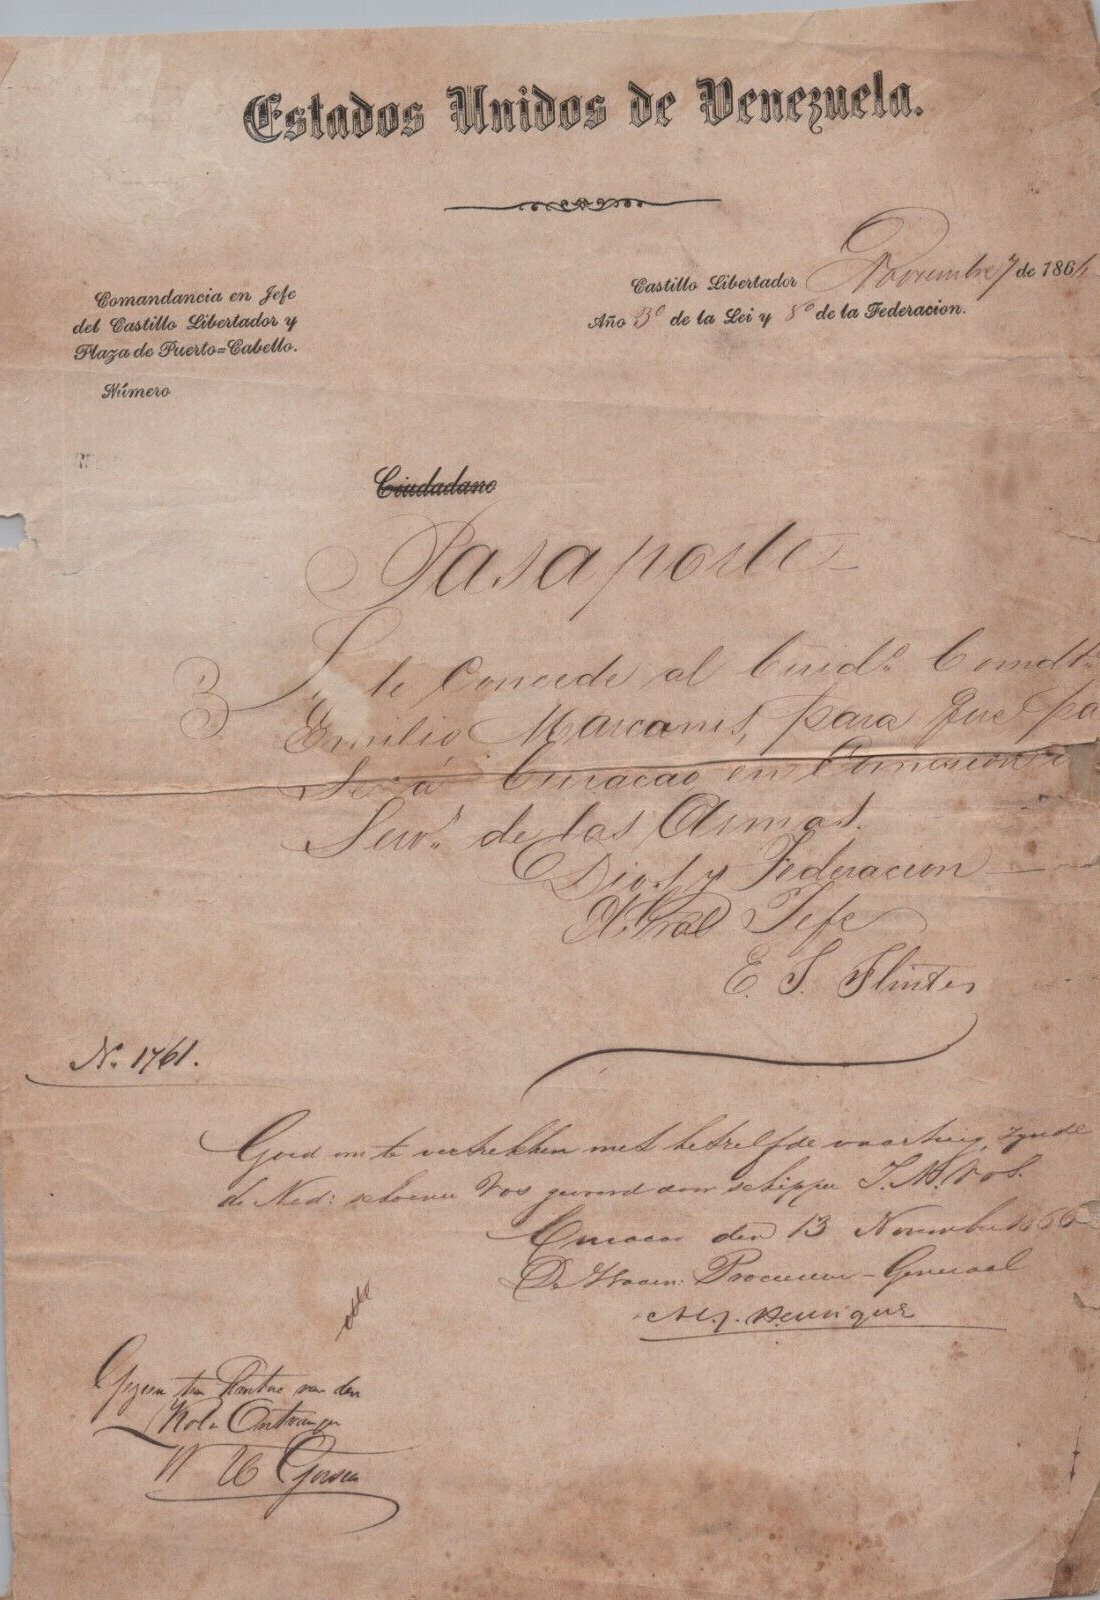 Estados Unidos de Venezuela.
Castillo Libertador Noviembre 7 de 186
Año 3º de la Lei y 8º de la Federacion.
Comandancia en Jefe
del Castillo Libertador y
Plaza de Puerto=Cabello.
Número
Ciudadano
Pasaporte
Se le Concede al Ciudº Comdte
Emilio Marcano, para que pa
se á Curacao en Comision
de las Armas.
Dios y Federacion
El Gral Jefe
E. S. Flinter
N. 1761.
Goed om te vertrekken met hetzelfde vaartuig, zynde
de Ned: schoener Vos gevoerd door schipper J. M. Vos.
Curacao den 13 November 1866
De Procureur-Generaal
Henriquez
Gezien ten Kantore van den
Kol. Ontvanger